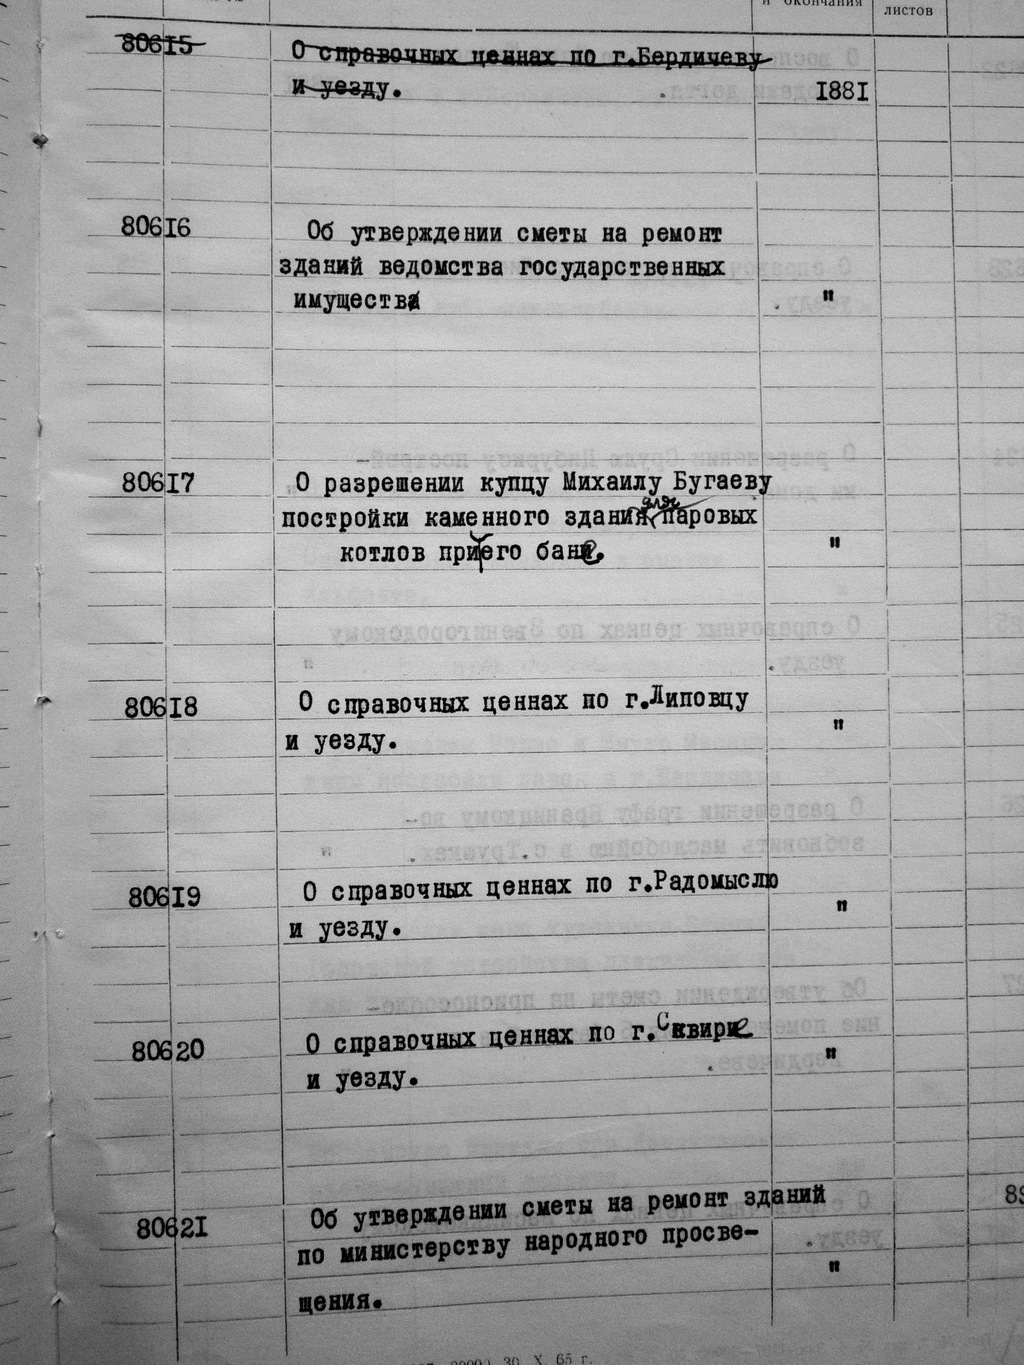 и окончания
листов
80615 О справочных ценнах по г.Бердичеву
и уезду. 1881
80616 Об утверждении сметы на ремонт
зданий ведомства государственных
имуществ "
80617 О разрешении купцу Михаилу Бугаеву
постройки каменного здания для паровых
котлов при его бане. "
80618 О справочных ценнах по г.Липовцу
и уезду. "
80619 О справочных ценнах по г.Радомыслю
и уезду. "
80620 О справочных ценнах по г.Сквире
и уезду. "
80621 Об утверждении сметы на ремонт зданий
по министерству народного просве-
щения. "
30 X 65 г.